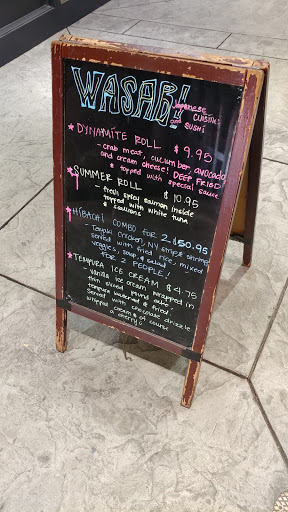 WASABI
Japanese
CUISINE
and SUSHI
* DYNAMITE ROLL $9.95
- crab meat, cucumber, avocado
and cream cheese! DEEP FRIED
* topped with special sauce
* SUMMER ROLL $10.95
- fresh spicy salmon inside
topped with white tuna
& scallions
* HIBACHI COMBO for 2-$50.95
- Teriyaki chicken, NY strip & shrimp
served with fried rice, mixed
veggies, soup, & salad
FOR 2 PEOPLE!
* TEMPURA ICE CREAM $4.75
- Vanilla ice cream wrapped in
thin sliced pound cake,
tempura battered & fried.
Served with chocolate drizzle
whipped cream & of course
a cherry!